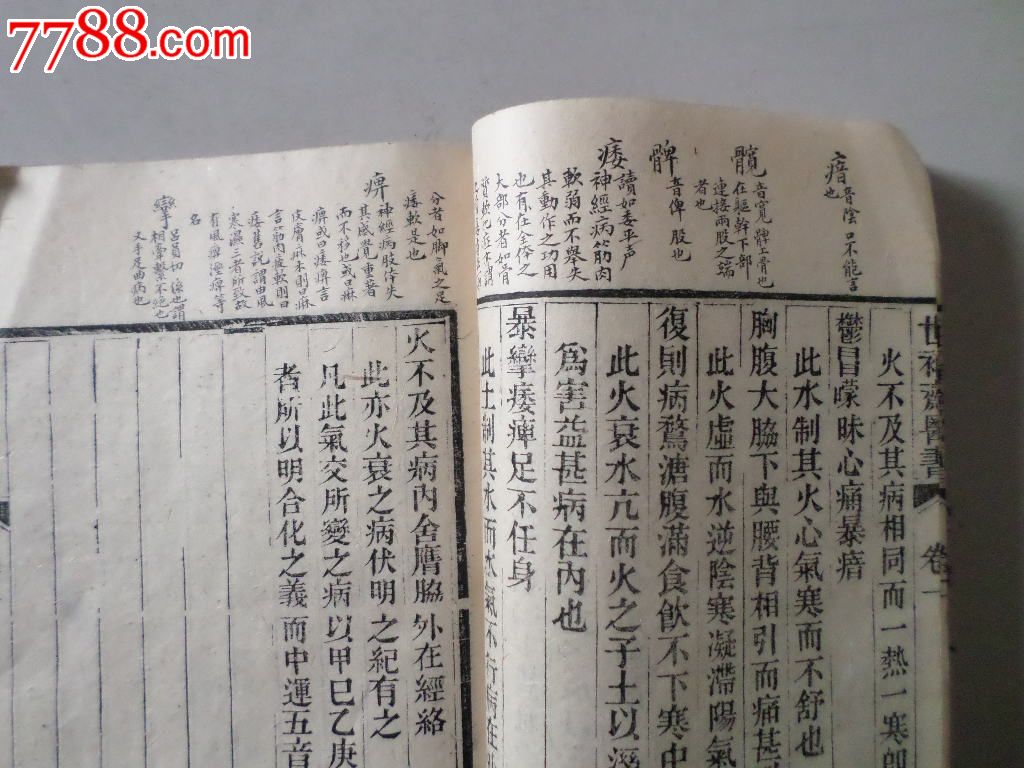 7788.com
瘖
音陰口不能言
也
髖
音寬髀上骨也
在軀幹下部
連接兩股之端
者也
髀
音俾股也
痿
讀如委平声
神經病筋肉
軟弱而不舉失
其動作之功用
也有在全体之
大部分者如骨
分者如脚氣之足
痿軟是也
痺
神經病肢体失
其感覺重著
而不移也或曰麻
痺或曰痿痺言
皮膚麻木則曰麻
言筋肉痿軟則曰
痿舊說謂由風
寒濕三者所致故
有風痺濕痺等
名
攣
呂員切係也謂
相常繫不絕也
又手足曲病也
世補齋醫書
卷
火不及其病相同而一熱一寒卽
鬱冒曚昧心痛暴瘖
此水制其火心氣寒而不舒也
胸腹大脇下與腰背相引而痛甚
此火虛而水逆陰寒凝滯陽氣
復則病鶩溏腹滿食飲不下寒中
此火衰水亢而火之子土以溼
爲害益甚病在內也
暴攣痿痺足不任身
此土制其水而水氣不行病在
火不及其病內舍膺脇外在經絡
此亦火衰之病伏明之紀有之
凡此氣交所變之病以甲巳乙庚
者所以明合化之義而中運五音